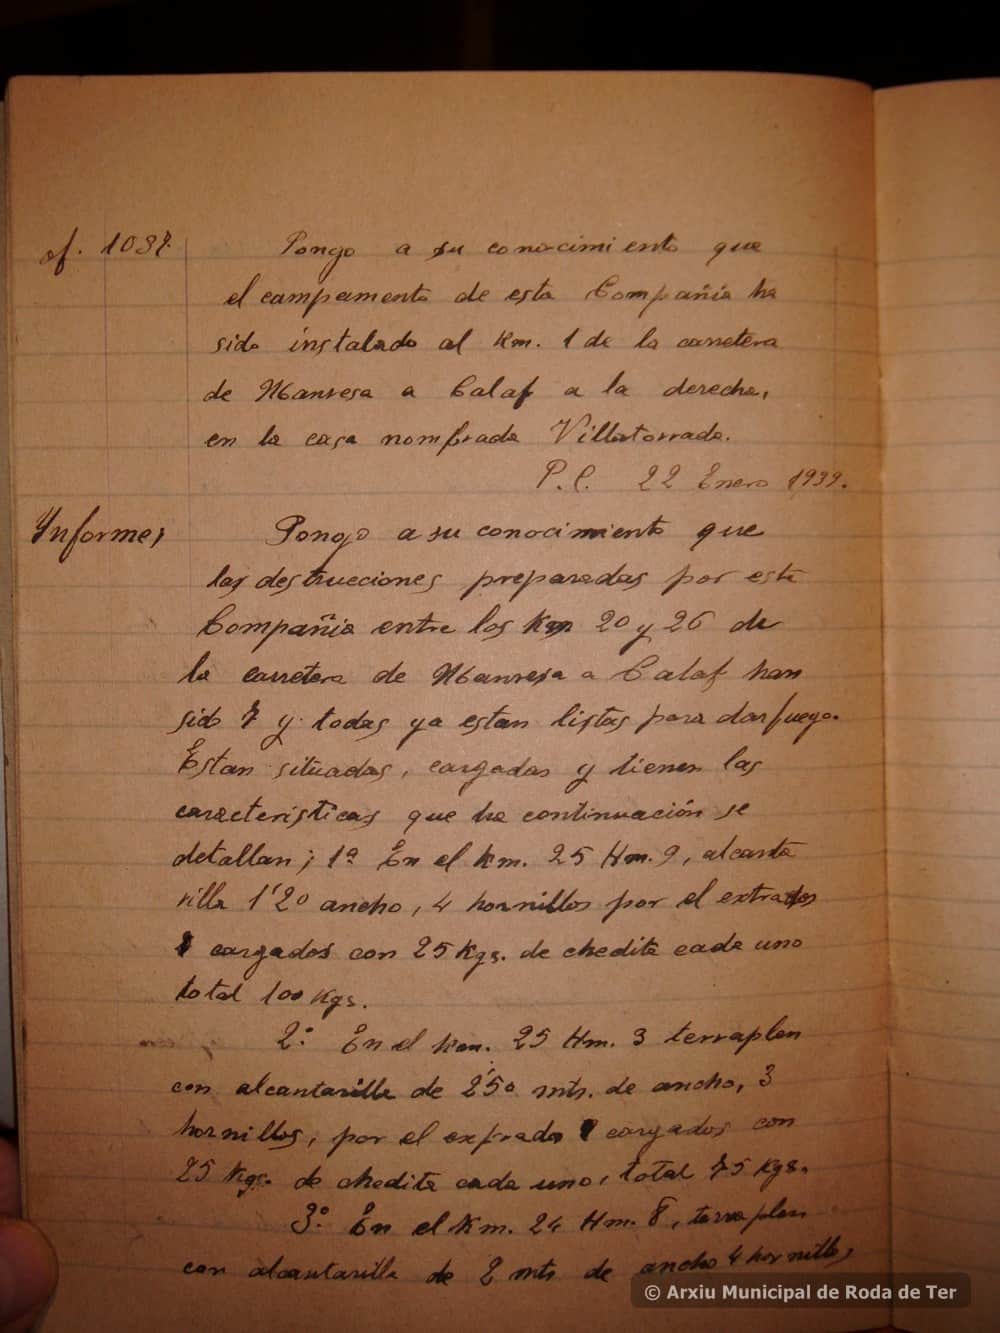 of. 1037. Pongo a su conocimiento que
el campamento de esta Compañia ha
sido instalado al Km. 1 de la carretera
de Manresa a Calaf a la derecha,
en la casa nombrada Villatorrada.
P.C. 22 Enero 1939.
Informe; Pongo a su conocimiento que
las destrucciones preparadas por esta
Compañia entre los Km 20 y 26 de
la carretera de Manresa a Calaf han
sido 7 y todas ya estan listas para dar fuego.
Estan situadas, cargadas y tienen las
caracteristicas que ha continuación se
detallan; 1ª En el Km. 25 Hm. 9, alcanta
rilla 1'20 ancho, 4 hornillos por el extrados
cargados con 25 Kgs. de chedita cada uno
total 100 Kgs.
2º En el km. 25 Hm. 3 terraplen
con alcantarilla de 2'50 mts. de ancho, 3
hornillos, por el extrados cargados con
25 Kgs. de chedita cada uno, total 75 Kgs.
3º En el Km. 24 Hm. 8, terraplen
con alcantarilla de 2 mts de ancho 4 hornillos,
© Arxiu Municipal de Roda de Ter